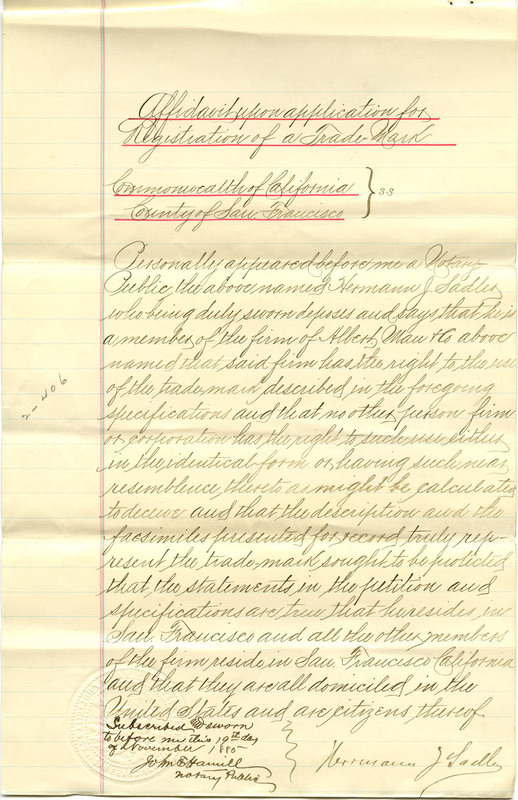 Affidavit upon application for
Registration of a Trade Mark
Commonwealth of California
County of San Francisco } ss
Personally appeared before me a Notary
Public, the above named Hermann J. Sadler
who being duly sworn deposes and says that he is
a member of the firm of Albert Mau & Co above
named that said firm has the right to the use
of the trade mark described in the foregoing
specifications and that no other person firm
or corporation has the right to such use either
in the identical form or having such near
resemblence thereto as might be calculated
to deceive and that the description and the
facsimiles presented for record truly rep-
resent the trade mark sought to be protected
that the statements in the petition and
specifications are true that he resides in
San Francisco and all the other members
of the firm reside in San Francisco California
and that they are all domiciled in the
United States and are citizens thereof
Subscribed & sworn
to before me this 19th day
of November 1885
John E Hamill
Notary Public
Herrmann J Sadler
2-406